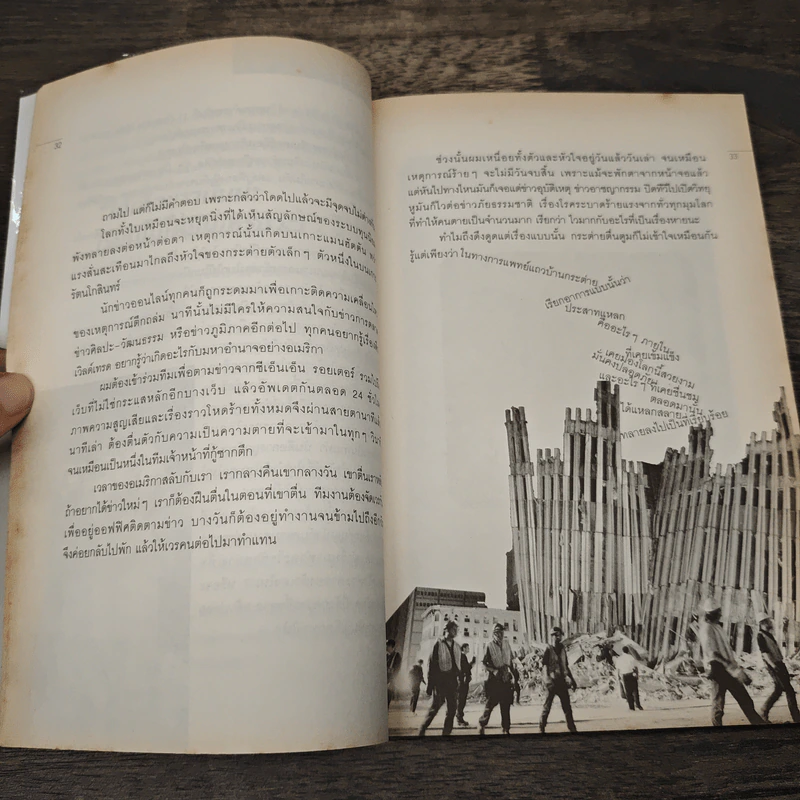 32
ถามไป แต่ก็ไม่มีคำตอบ เพราะกลัวว่าโดดไปแล้วจะมีจุดจบไม่ต่างกัน
โลกทั้งใบเหมือนจะหยุดนิ่งที่ได้เห็นสัญลักษณ์ของระบบทุนนิยม
พังทลายลงต่อหน้าต่อตา เหตุการณ์นั้นเกิดบนเกาะแมนฮัตตัน
แรงสั่นสะเทือนมาไกลถึงหัวใจของกระต่ายตัวเล็กๆ ตัวหนึ่งในบน
รัตนโกสินทร์
นักข่าวออนไลน์ทุกคนก็ถูกระดมมาเพื่อเกาะติดความเคลื่อนไหว
ของเหตุการณ์ตึกถล่ม นาทีนั้นไม่มีใครให้ความสนใจกับข่าวการตลาด
ข่าวศิลปะ-วัฒนธรรม หรือข่าวภูมิภาคอีกต่อไป ทุกคนอยากรู้เรื่อง
เวิลด์เทรด อยากรู้ว่าเกิดอะไรกับมหาอำนาจอย่างอเมริกา
ผมต้องเข้าร่วมทีมเพื่อตามข่าวจากซีเอ็นเอ็น รอยเตอร์ รวมไปถึง
เว็บที่ไม่ใช่กระแสหลักอีกบางเว็บ แล้วอัพเดตกันตลอด 24 ชั่วโมง
ภาพความสูญเสียและเรื่องราวโหดร้ายทั้งหมดจึงผ่านสายตานาทีแล้ว
นาทีเล่า ต้องตื่นตัวกับความเป็นความตายที่จะเข้ามาในทุกๆ วินาที
จนเหมือนเป็นหนึ่งในทีมเจ้าหน้าที่กู้ซากตึก
เวลาของอเมริกาสลับกับเรา เรากลางคืนเขากลางวัน เขาตื่นเราหลับ
ถ้าอยากได้ข่าวใหม่ๆ เราก็ต้องฝืนตื่นในตอนที่เขาตื่น ทีมงานต้องจัดเวร
เพื่ออยู่ออฟฟิศติดตามข่าว บางวันก็ต้องอยู่ทำงานจนข้ามไปถึงอีกวัน
จึงค่อยกลับไปพัก แล้วให้เวรคนต่อไปมาทำแทน
33
ช่วงนั้นผมเหนื่อยทั้งตัวและหัวใจอยู่วันแล้ววันเล่า จนเหมือน
เหตุการณ์ร้ายๆ จะไม่มีวันจบสิ้น เพราะแม้จะพักตาจากหน้าจอแล้ว
แต่หันไปทางไหนมันก็เจอแต่ข่าวอุบัติเหตุ ข่าวอาชญากรรม ปิดทีวีไปเปิดวิทยุ
หูมันก็ไวต่อข่าวภัยธรรมชาติ เรื่องโรคระบาดร้ายแรงจากทั่วทุกมุมโลก
ที่ทำให้คนตายเป็นจำนวนมาก เรียกว่า ไวมากกับอะไรที่เป็นเรื่องหายนะ
ทำไมถึงดึงดูดแต่เรื่องแบบนั้น กระต่ายตื่นตูมก็ไม่เข้าใจเหมือนกัน
รู้แต่เพียงว่า ในทางการแพทย์แถวบ้านกระต่าย
เรียกอาการแบบนั้นว่า
ประสาทแหลก
คืออะไรๆ ภายใน
ที่เคยเข้มแข็ง
เคยมองโลกนี้สวยงาม
มั่นคงปลอดภัย
และอะไรๆ ที่เคยชื่นชม
ตลอดมานั้น
ได้แหลกสลาย
ทลายลงไปเป็นที่เรียบร้อย